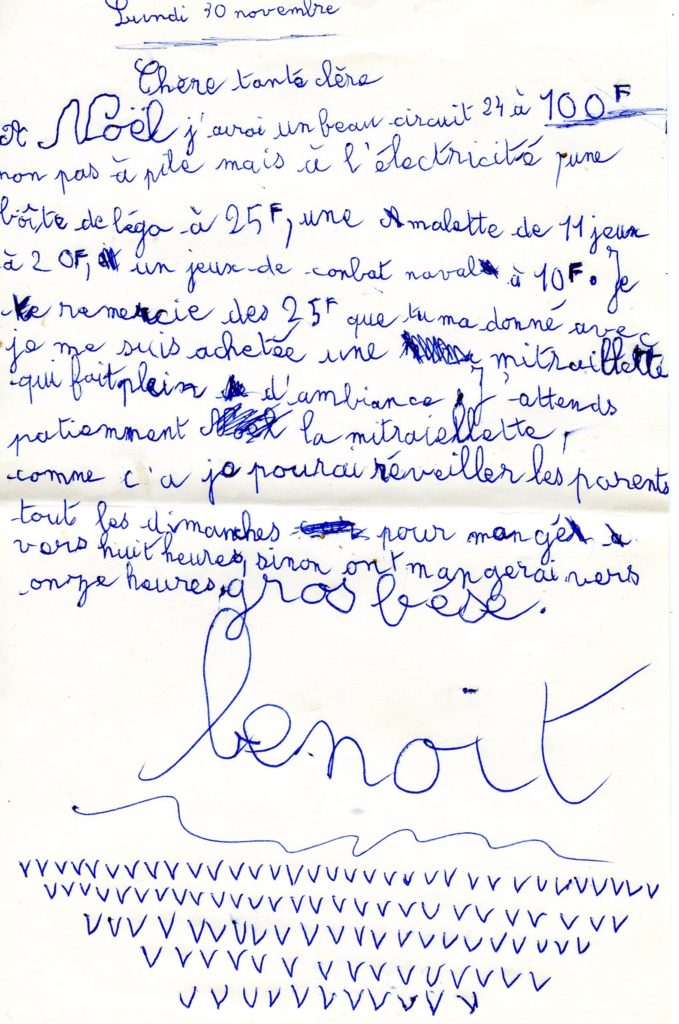 Lundi 30 novembre
Chère tante clère
A Noël j'auroi un beau circuit 24 à 100F
non pas à pile mais à l'électricité, une
boîte de légo à 25F, une malette de 11 jeux
à 20F, un jeux de conbat naval à 10F. Je
te remercie des 25F que tu ma donné avec
je me suis achetée une mitraillette
qui fait plein d'ambiance. J'attends
patiemment la mitraiellette,
comme c'a je pourai réveiller les parents
tout les dimanches pour mangé
vers huit heures, sinon ont mangerai vers
onze heures, gros bése.
benoit
VVVVVVVVVVVVVVVVVVVVVVVVVVVVVVV
VVVVVVVVVVVVVVVVVVVVVVVVVV
VVVVVVVVVVVVVVVVVVVVVVVV
VVVVVVVVVVVVVVV
VVVVVVVVVVVV